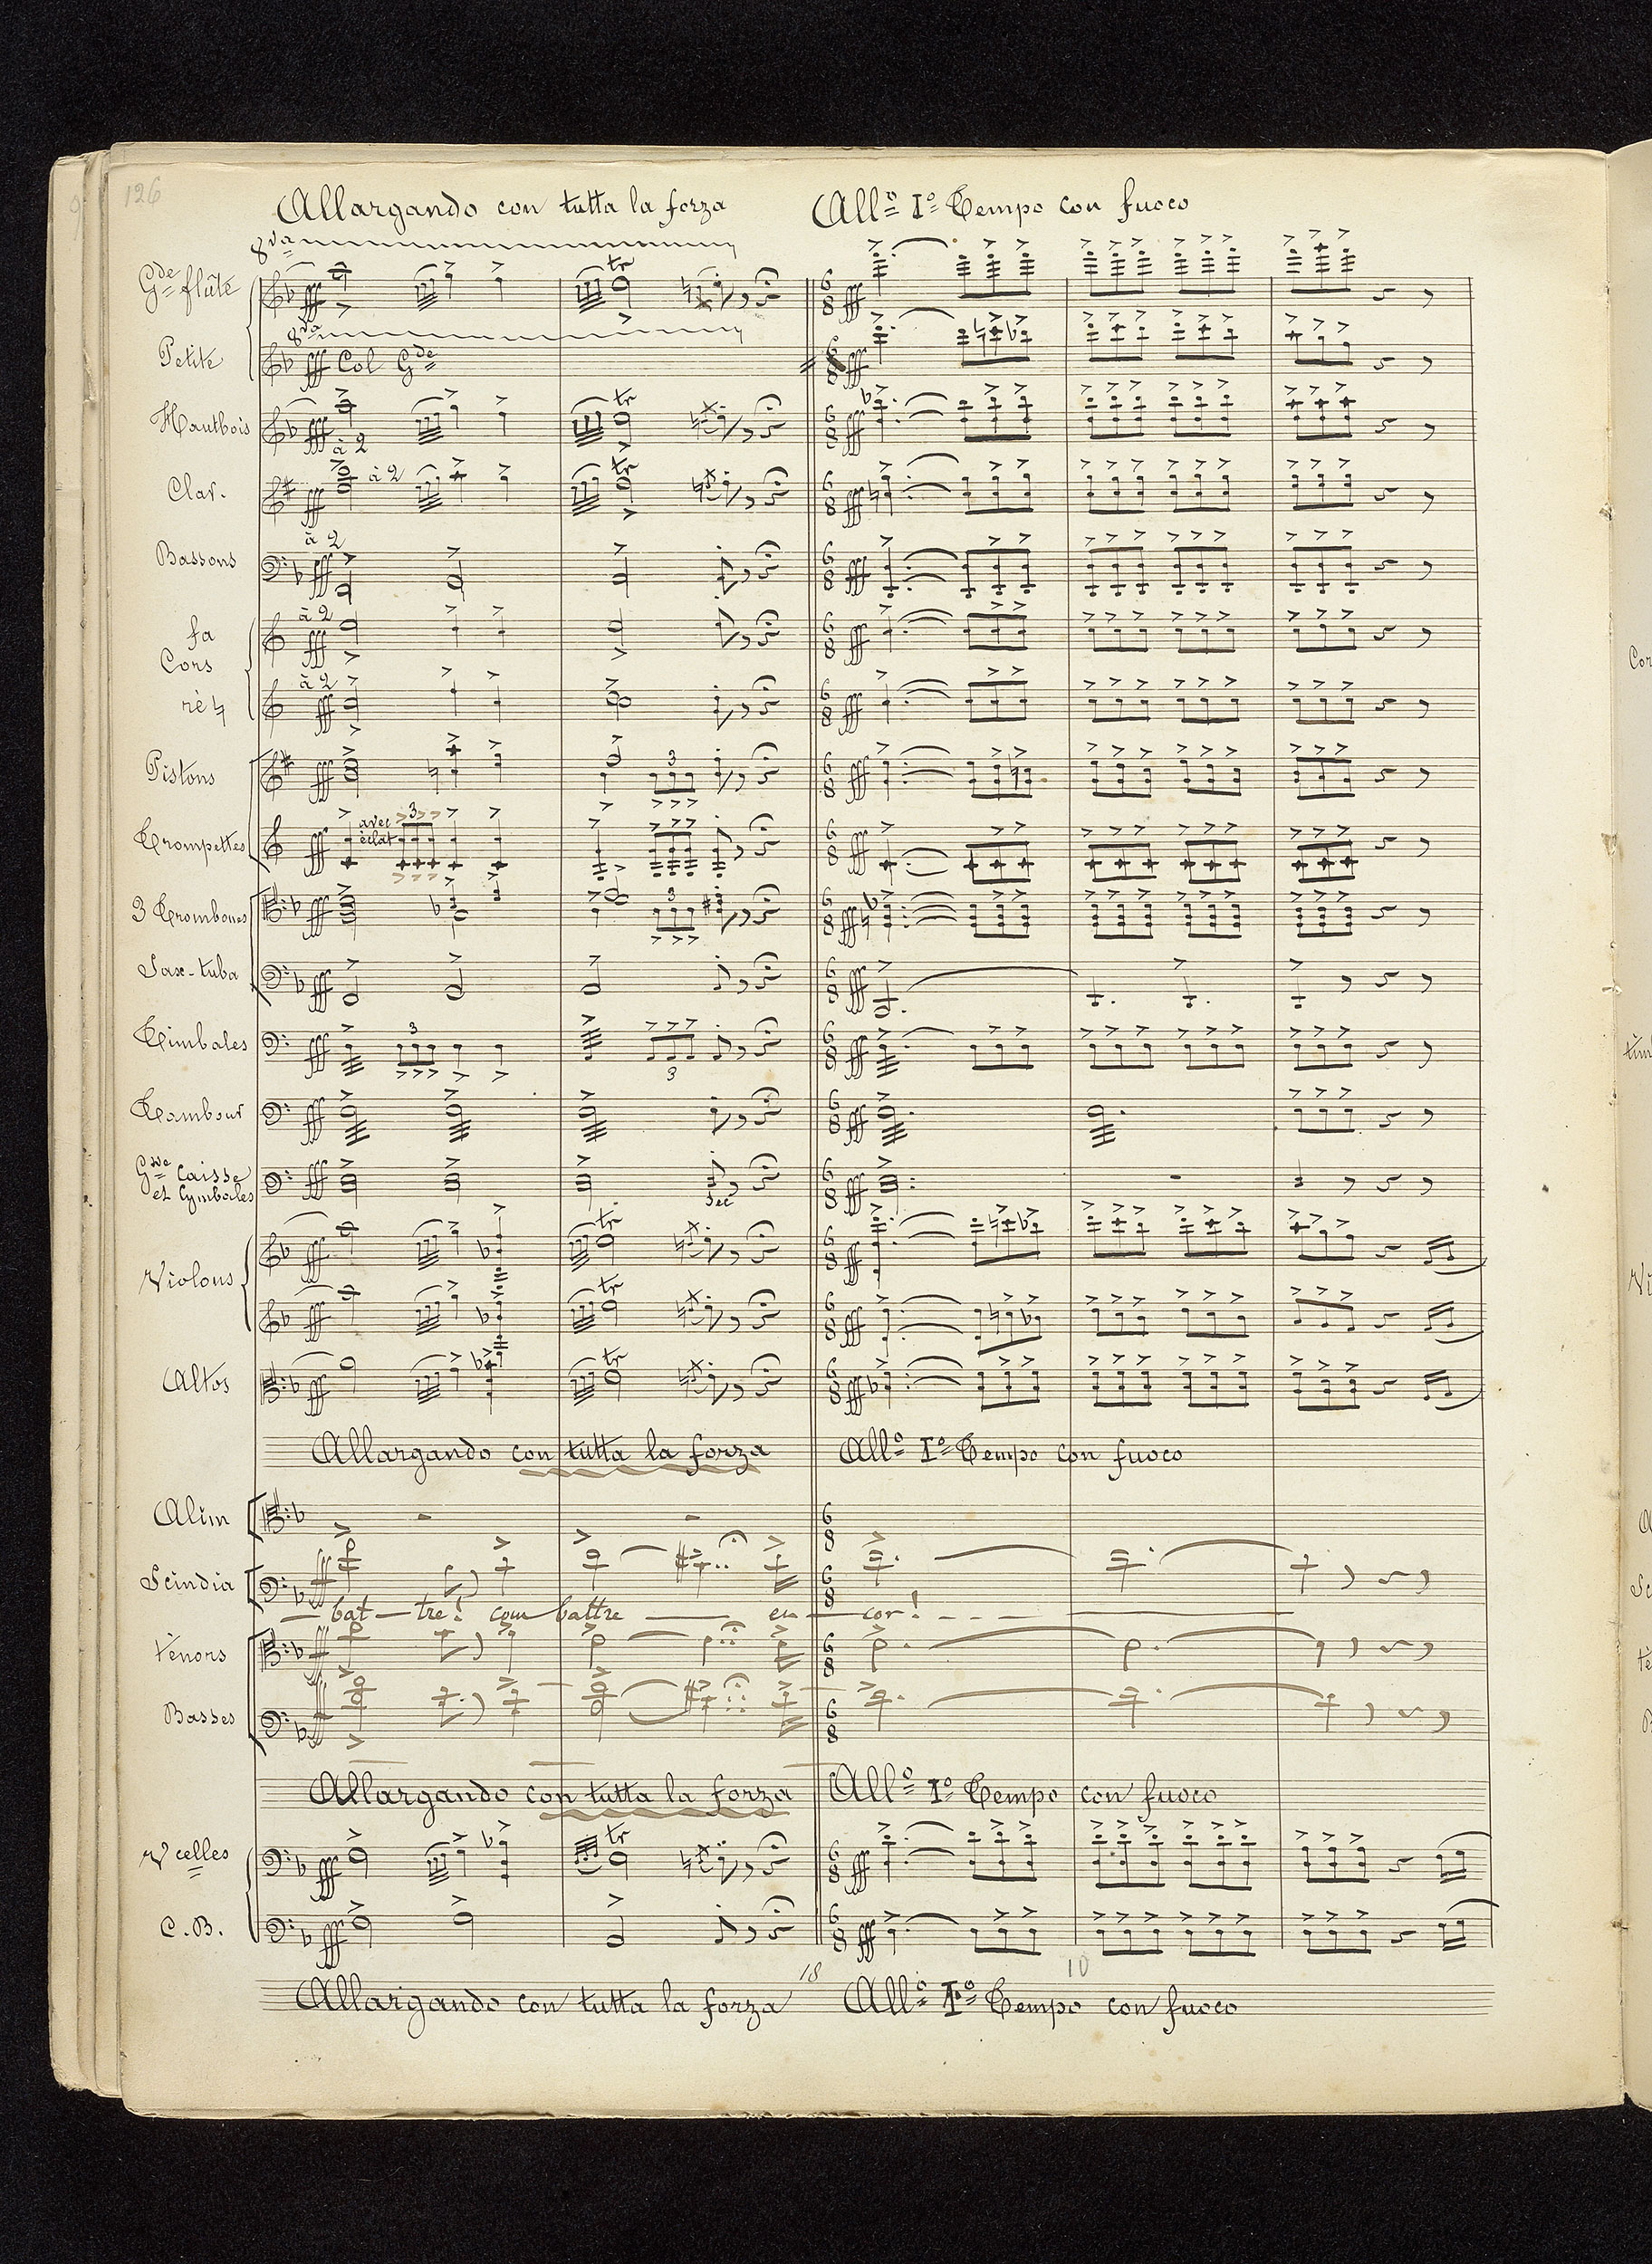 126
Allargando con tutta la forza All° I° Tempo con fuoco
8va
Gde flûte
8va
Petite fff Col Gde
Hautbois fff à 2
Clar. fff à 2
à 2
Bassons fff
à 2
fa fff
Cors
à 2
ré ♮ fff
Pistons fff 3
Trompettes fff avec éclat 3
3 Trombones fff 3
Sax-tuba fff
Timbales fff 3 3
Tambour fff
Gsse Caisse et Cymbales fff sec
Violons fff
fff
Altos fff
Allargando con tutta la forza All° I° Tempo con fuoco
Alim
Scindia fff
bat - tre! com battre en - cor!
ténors fff
Basses fff
Allargando con tutta la forza All° I° Tempo con fuoco
Vcelles fff
C.B. fff
18 10
Allargando con tutta la forza All° I° Tempo con fuoco